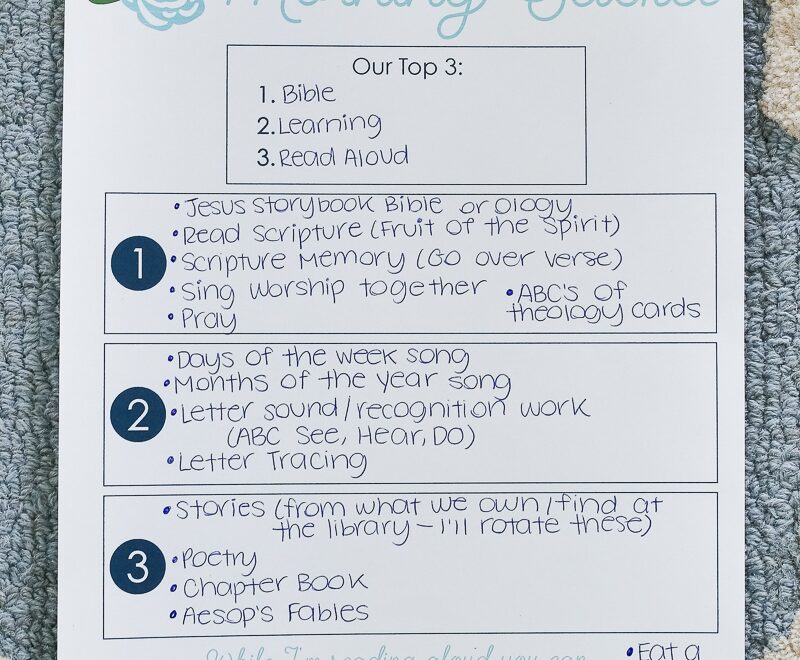 Morning
Our Top 3:
1. Bible
2. Learning
3. Read Aloud
1
• Jesus Storybook Bible or Ology
• Read Scripture (Fruit of the Spirit)
• Scripture Memory (Go over verse)
• Sing worship together
• Pray
• ABC's of
theology cards
2
• Days of the week song
• Months of the year song
• Letter sound/recognition work
(ABC See, Hear, Do)
• Letter Tracing
3
• Stories (from what we own/find at
the library - I'll rotate these)
• Poetry
• Chapter Book
• Aesop's Fables
While I'm reading aloud you can
• Eat a